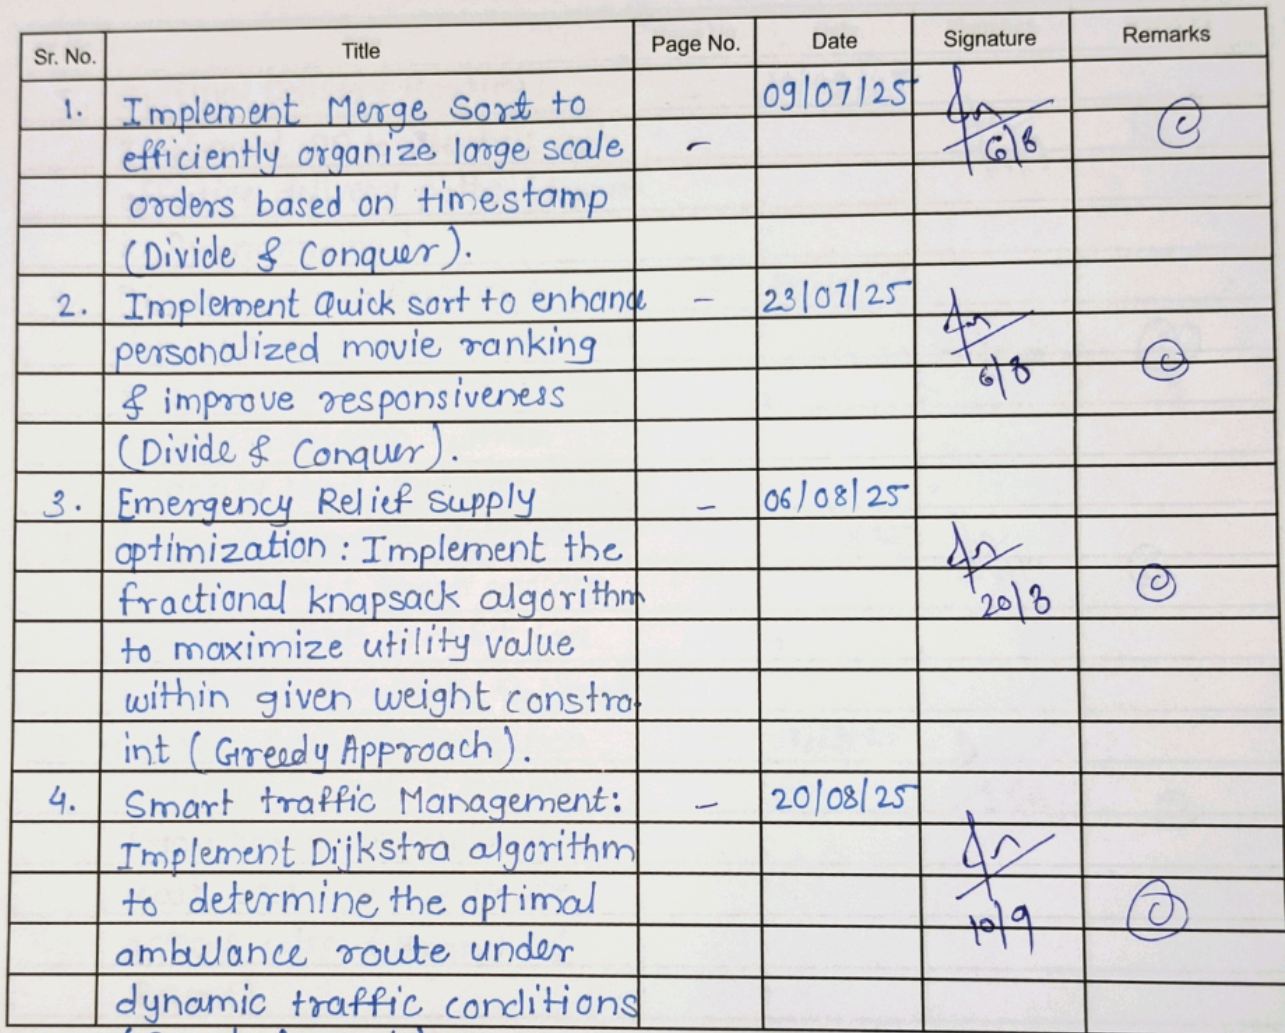 Sr. No. Title Page No. Date Signature Remarks
1. Implement Merge Sort to 09/07/25
efficiently organize large scale - 6/8
orders based on timestamp
(Divide & Conquer).
2. Implement Quick sort to enhance - 23/07/25
personalized movie ranking 6/8
& improve responsiveness
(Divide & Conquer).
3. Emergency Relief Supply - 06/08/25
optimization: Implement the
fractional knapsack algorithm 20/8
to maximize utility value
within given weight constra-
int (Greedy Approach).
4. Smart traffic Management: - 20/08/25
Implement Dijkstra algorithm
to determine the optimal
ambulance route under 10/9
dynamic traffic conditions